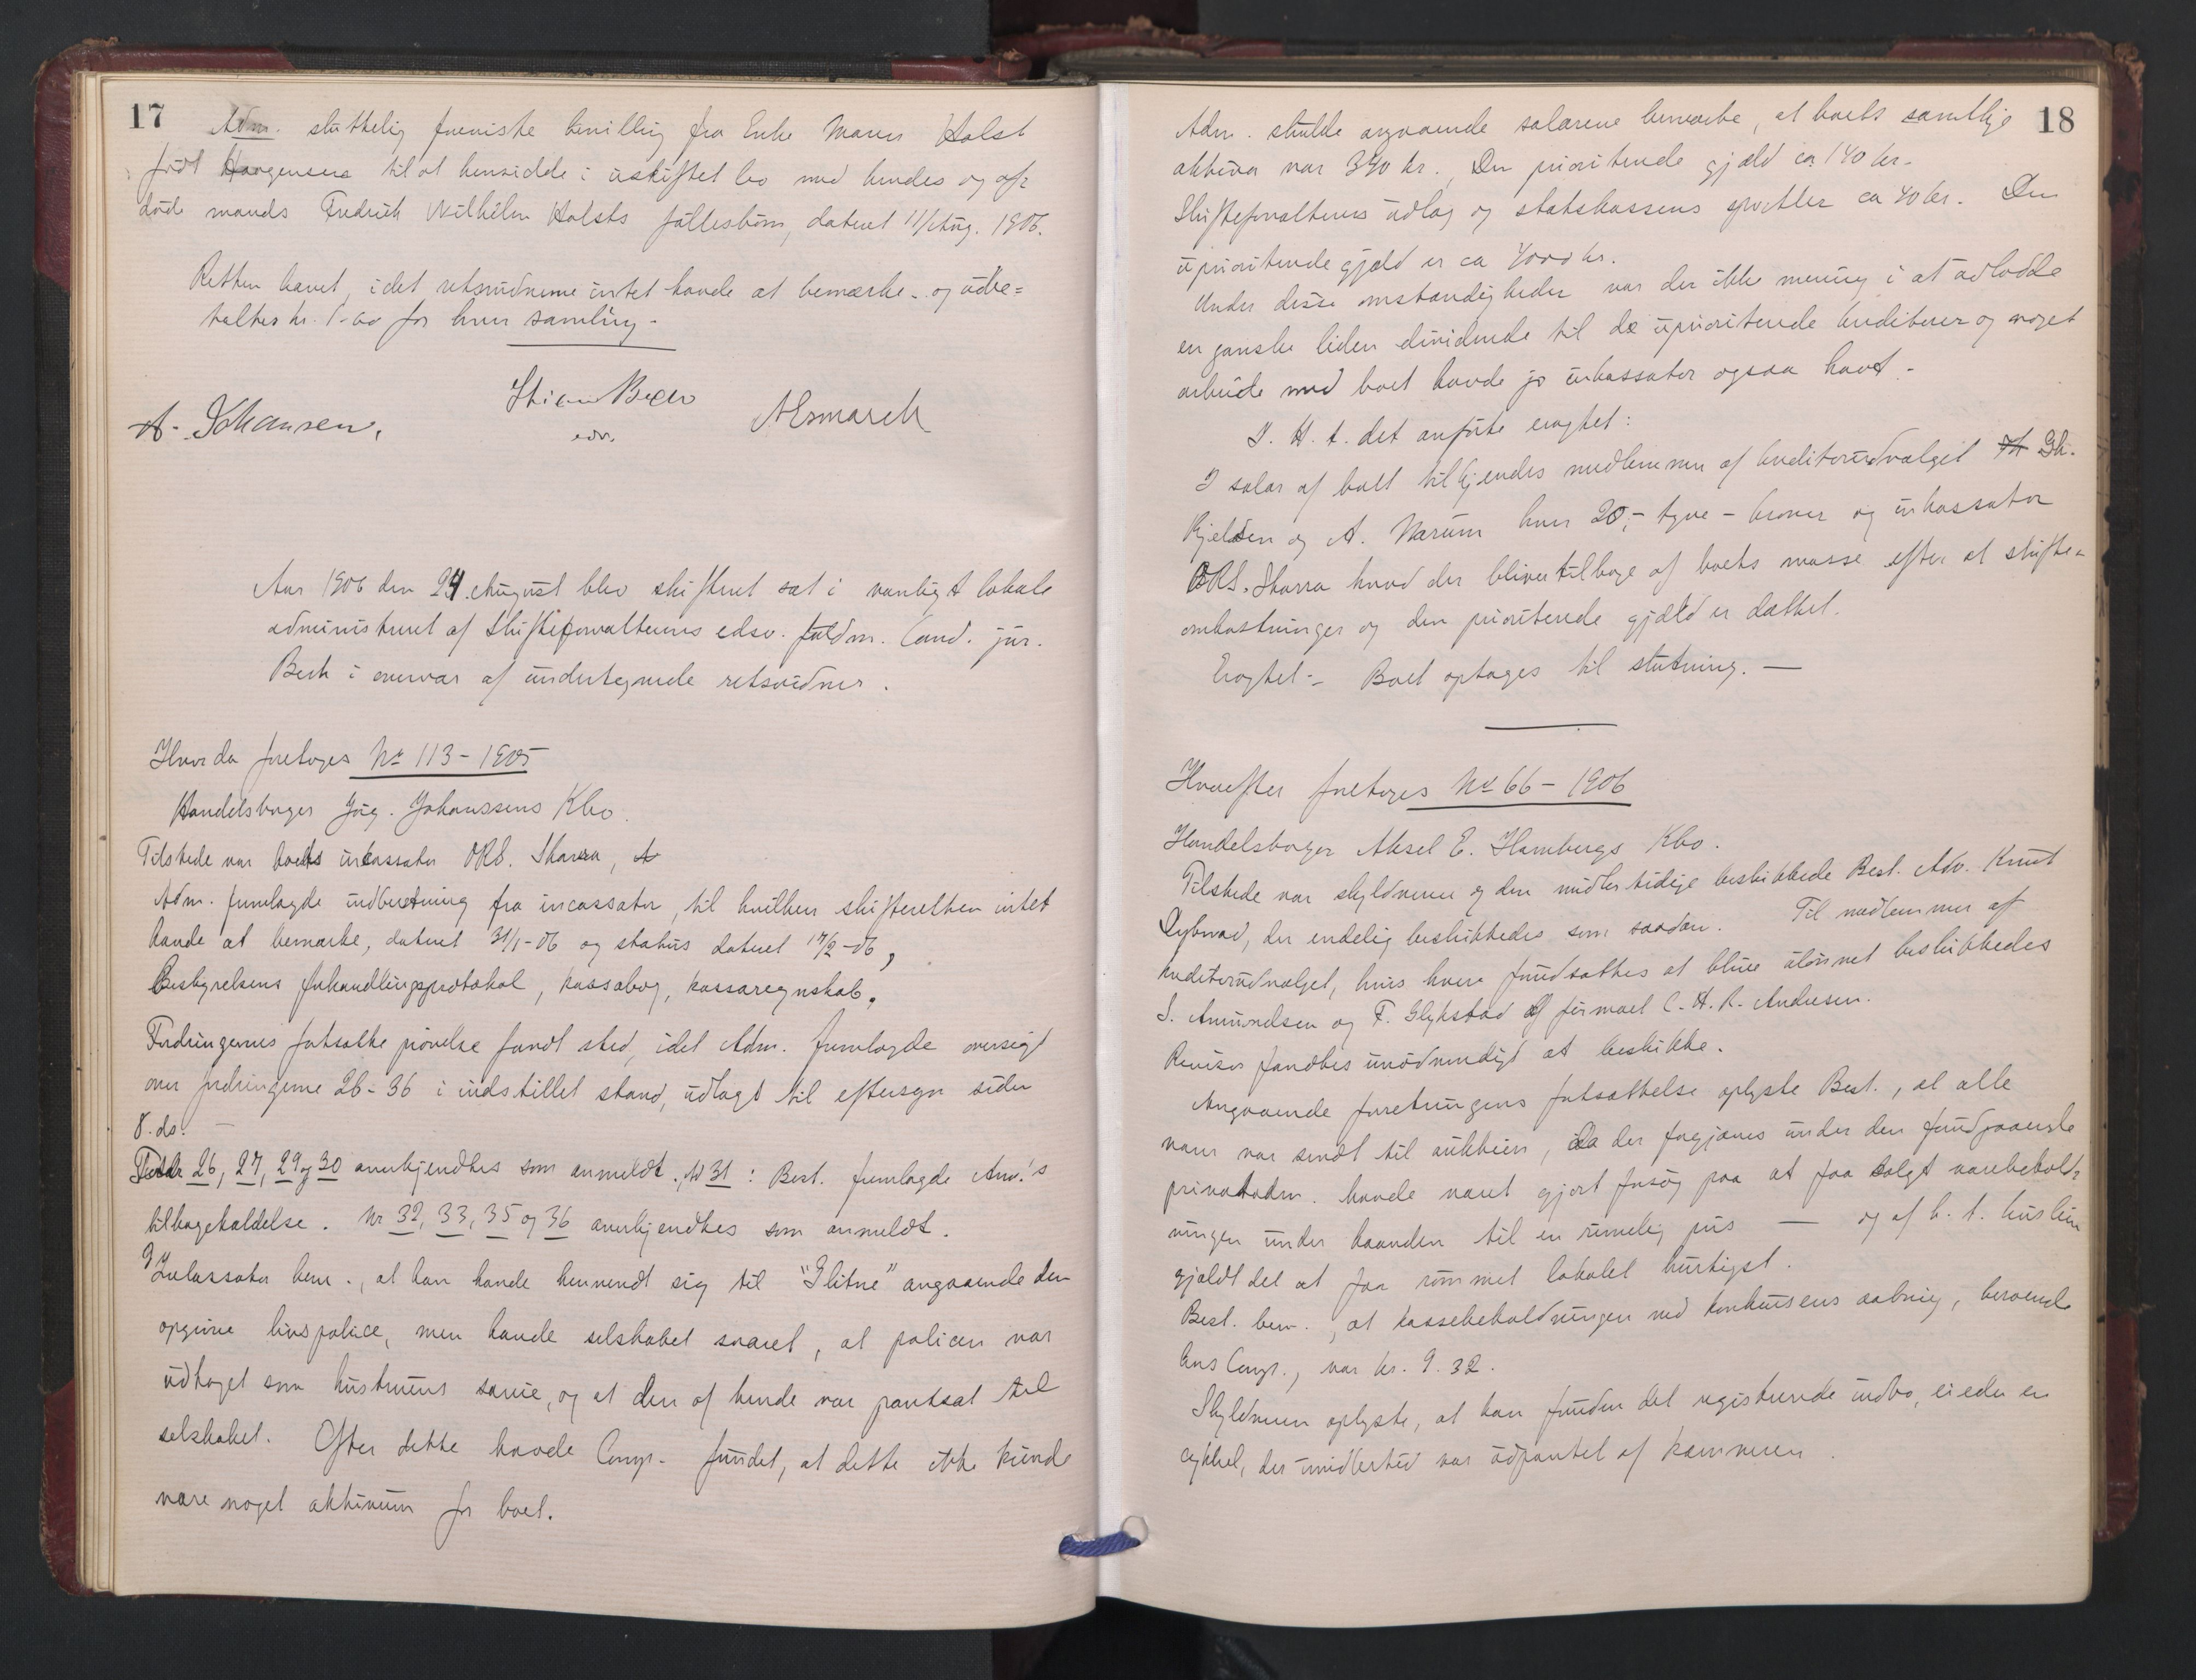 17
Adm. sluttelig fremviste bevilling fra Enke Maren Holst
født Haagensen til at hensidde i uskiftet bo med hendes og af=
døde mands Fredrik Wilhelm Holsts fællesbørn, dateret 11/Aug. 1906.
Retten hævet, idet retsvidnerne intet havde at bemærke. og udbe=
taltes kr. 1-00 for hver samling.
A. Johansen,
edsv.
A Esmarch
Aar 1906 den 24. August blev skifteret sat i vanligt lokale
administreret af Skifteforvalterens edsv. fuldm. Cand. jur.
Beck i overvær af undertegnede retsvidner.
Hvorda foretoges No 113 - 1905
Handelsborger Joh. Johanssens Kbo.
Tilstede var boets inkassator ORS. Skarra,
Adm. fremlagde indberetning fra incassator, til hvilken skifteretten intet
havde at bemærke, dateret 31/1-06 og status dateret 17/2-06,
Bestyrelsens forhandlingsprotokol, kassabog, kassaregnskab.
Fordringernes fortsatte prøvelse fandt sted, idet Adm. fremlagde oversigt
over fordringerne 26-36 i indstillet stand, udlagt til eftersyn siden
8. ds.
Fordr 26, 27, 29 og 30 anerkjendtes som anmeldt. Nr 31: Best. fremlagde Anm.'s
tilbagekaldelse. Nr 32, 33, 35 og 36 anerkjendtes som anmeldt.
Inkassator bem., at han havde henvendt sig til "Glitne" angaaende den
opgivne livspolice, men havde selskabet svaret, at policen var
udtaget som hustruens særeie, og at den af hende var pantsat til
selskabet. Efter dette havde Comp. fundet, at dette ikke kunde
være noget aktivum for boet.
18
Adm. skulde angaaende salærene bemærke, at boets samtlige
aktiva var 340 kr., Den prioriterede gjæld ca 140 kr.
Skifteforvalterens udlæg og statskassens sportler ca 40 kr. Den
uprioriterede gjæld er ca 4000 kr.
Under disse omstændigheder var der ikke mening i at udlodde
en ganske liden dividende til de uprioriterede kreditorer og noget
arbeide med boet havde jo inkassator ogsaa havt.
I. H. t. det anførte eragtet:
I salær af boet tilkjendes medlemmer af kreditorudvalget Chr.
Kjeldsen og A. Narum hver 20,- tyve - kroner og inkassator
ORS. Skarra hvad der bliver tilbage af boets masse efter at skifte=
omkostninger og den prioriterede gjæld er dækket.
Eragtet:- Boet optages til slutning. -
Hvorefter foretoges No 66 - 1906
Handelsborger Aksel E. Hambergs Kbo.
Tilstede var skyldneren og den midlertidige beskikkede Best. Adv. Knut
Dybwad, der endelig beskikkedes som saadan. Til medlemmer af
kreditorudvalget, hvis hverv forudsattes at blive ulønnet beskikkedes
S. Amundsen og F. Glykstad af firmaet C. H. R. Andresen.
Revisor fandtes unødvendigt at beskikke.
Angaaende forretningens fortsættelse oplyste Best., at alle
varer var sendt til auktion, da der forgjæves under den forudgaaende
privatadm. havde været gjort forsøg paa at faa solgt varebehold=
ningen under haanden til en rimelig pris — og af h. t. husleien
gjaldt det at faa rømmet lokalet hurtigst.
Best. bem., at kassebeholdningen ved konkursens aabning, beroende
hos Comp., var kr. 9.32.
Skyldneren oplyste, at han foruden det registrerede indbo, eiede en
cykkel, der imidlertid var udpantet af kæmneren.